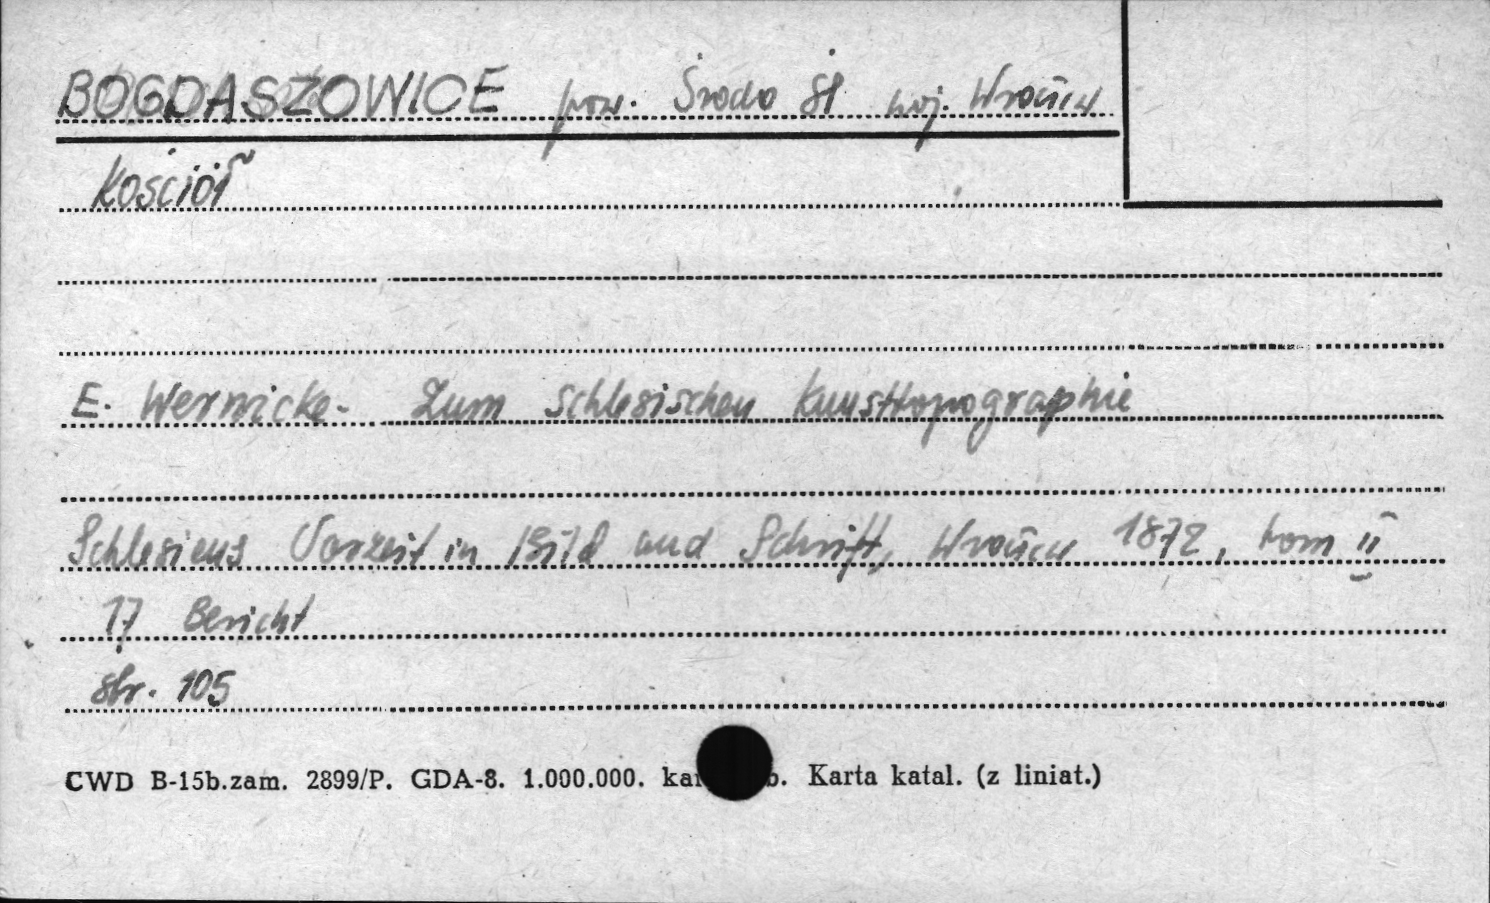 BOGDASZOWICE pow. Środa Śl woj. Wrocław
Kościół
E. Wernicke - Zum Schlesischen Kunsttopographie
Schlesiens Vorzeit in Bild und Schrift, Wrocław 1872, tom II
17 Bericht
str. 105
CWD B-15b.zam. 2899/P. GDA-8. 1.000.000. Karta katal. (z liniat.)